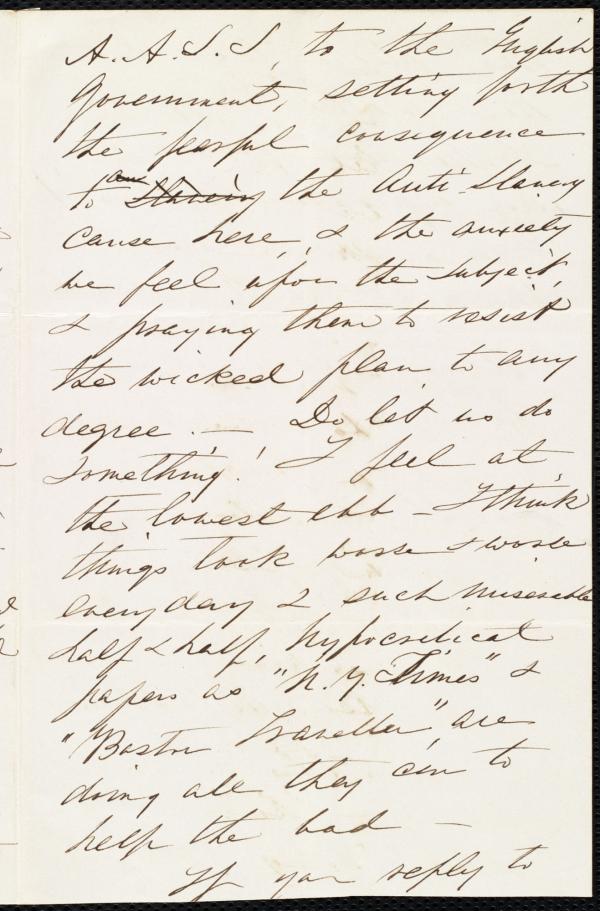 A. A. S. S, to the English
Government, setting forth
the fearful consequence
to our Slavery the Anti-Slavery
cause here, & the anxiety
we feel upon the subject,
& praying them to resist
the wicked plan to any
degree. — Do let us do
something! I feel at
the lowest ebb — I think
things look worse & worse
every day & such miserable
half & half, hypocritical
papers as "N. Y. Times" &
"Boston Traveller" are
doing all they can to
help the bad —
If you reply to